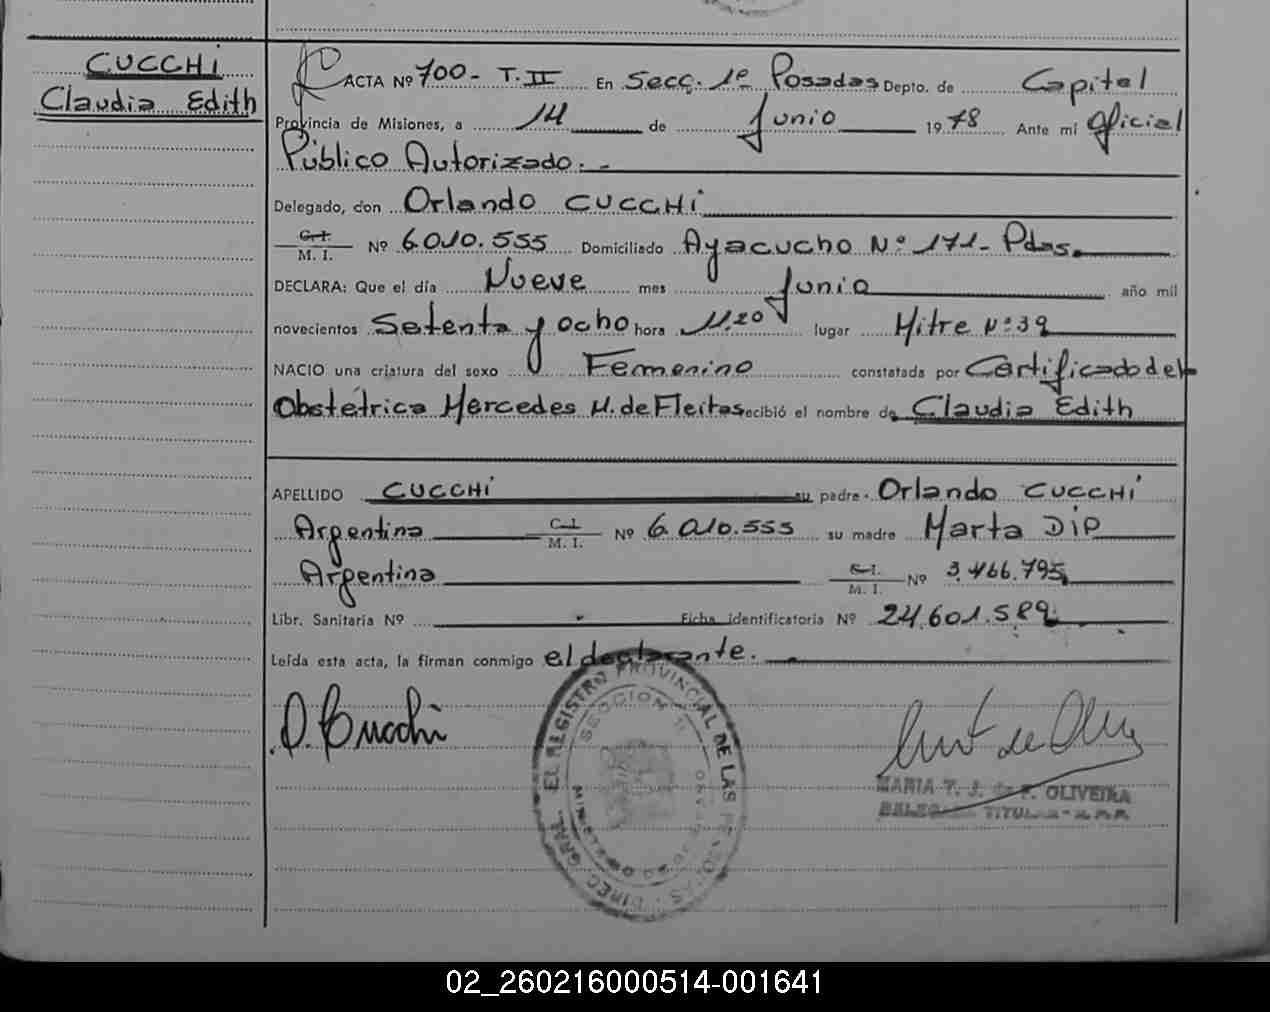 CUCCHI
Claudia Edith
ACTA Nº 700- T.II En Secc. 1º Posadas Depto. de Capital
Provincia de Misiones, a 14 de Junio 1978 Ante mi Oficial
Público Autorizado.-
Delegado, don Orlando CUCCHI
C. I. M. I. Nº 6.010.555 Domiciliado Ayacucho Nº 171- Pdas.
DECLARA: Que el día Nueve mes Junio año mil
novecientos Setenta y ocho hora 11.20 lugar Mitre Nº 39
NACIO una criatura del sexo Femenino constatada por Certificado de
Obstétrica Mercedes M. de Fleitas recibió el nombre de Claudia Edith
APELLIDO CUCCHI su padre Orlando CUCCHI
Argentina C. I. M. I. Nº 6.010.555 su madre Marta DIP
Argentina C. I. M. I. Nº 3.466.795
Libr. Sanitaria Nº Ficha identificatoria Nº 24.601.589
Leída esta acta, la firman conmigo el declarante.
O. Cucchi
DIREC. GRAL. EL REGISTRO PROVINCIAL DE LAS PERSONAS
SECCION
MARIA T. J. de F. OLIVEIRA
TITULAR
02_260216000514-001641